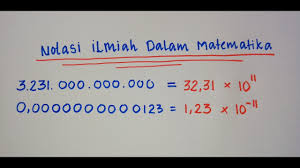 Notasi iLmiah DaLam Matematika
3.231.000.000.000 = 32,31 × 10¹¹
0,0000000000123 = 1,23 × 10⁻¹¹